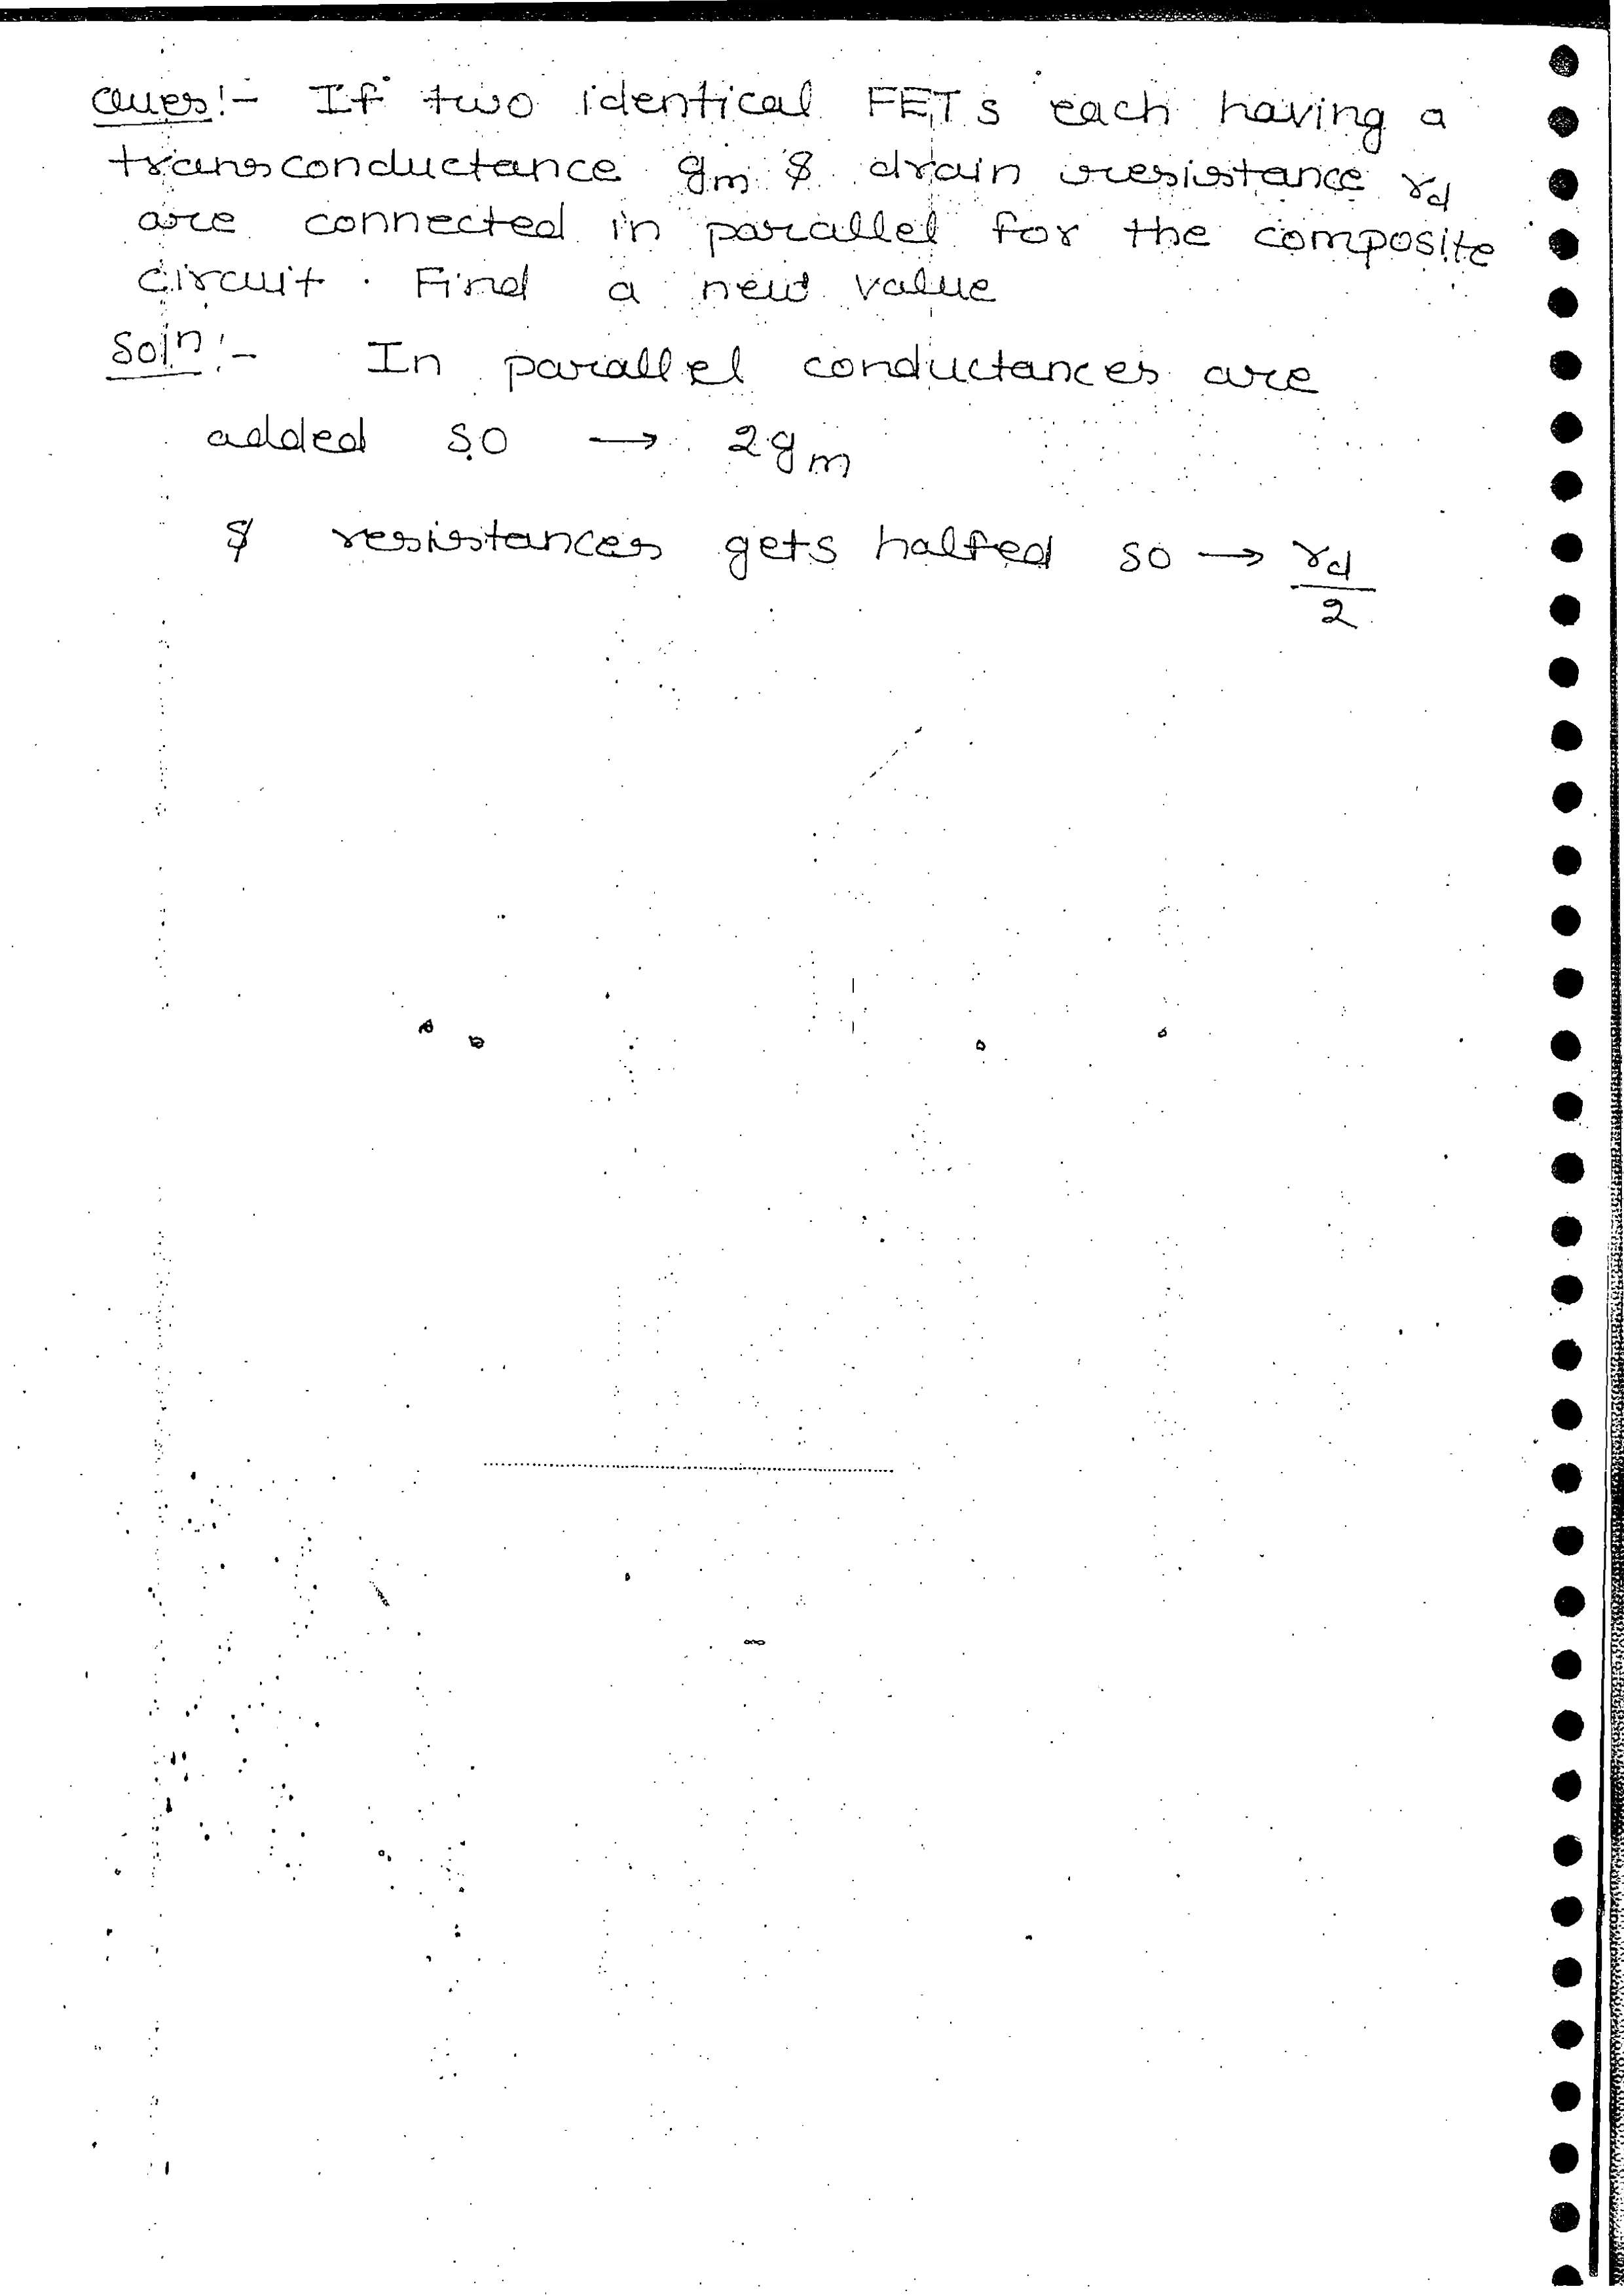 Ques:- If two identical FETs each having a
transconductance gm & drain resistance rd
are connected in parallel for the composite
circuit. Find a new value
Soln:- In parallel conductances are
added so → 2gm
& resistances gets halfed so → rd/2